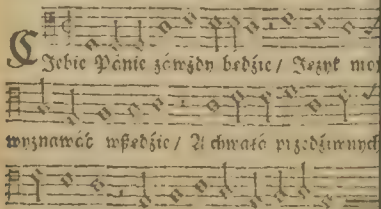 Ciebie Pánie záwżdy będźie / Język moy
wyznawáć wßędźie / A chwałá przedźiwnych